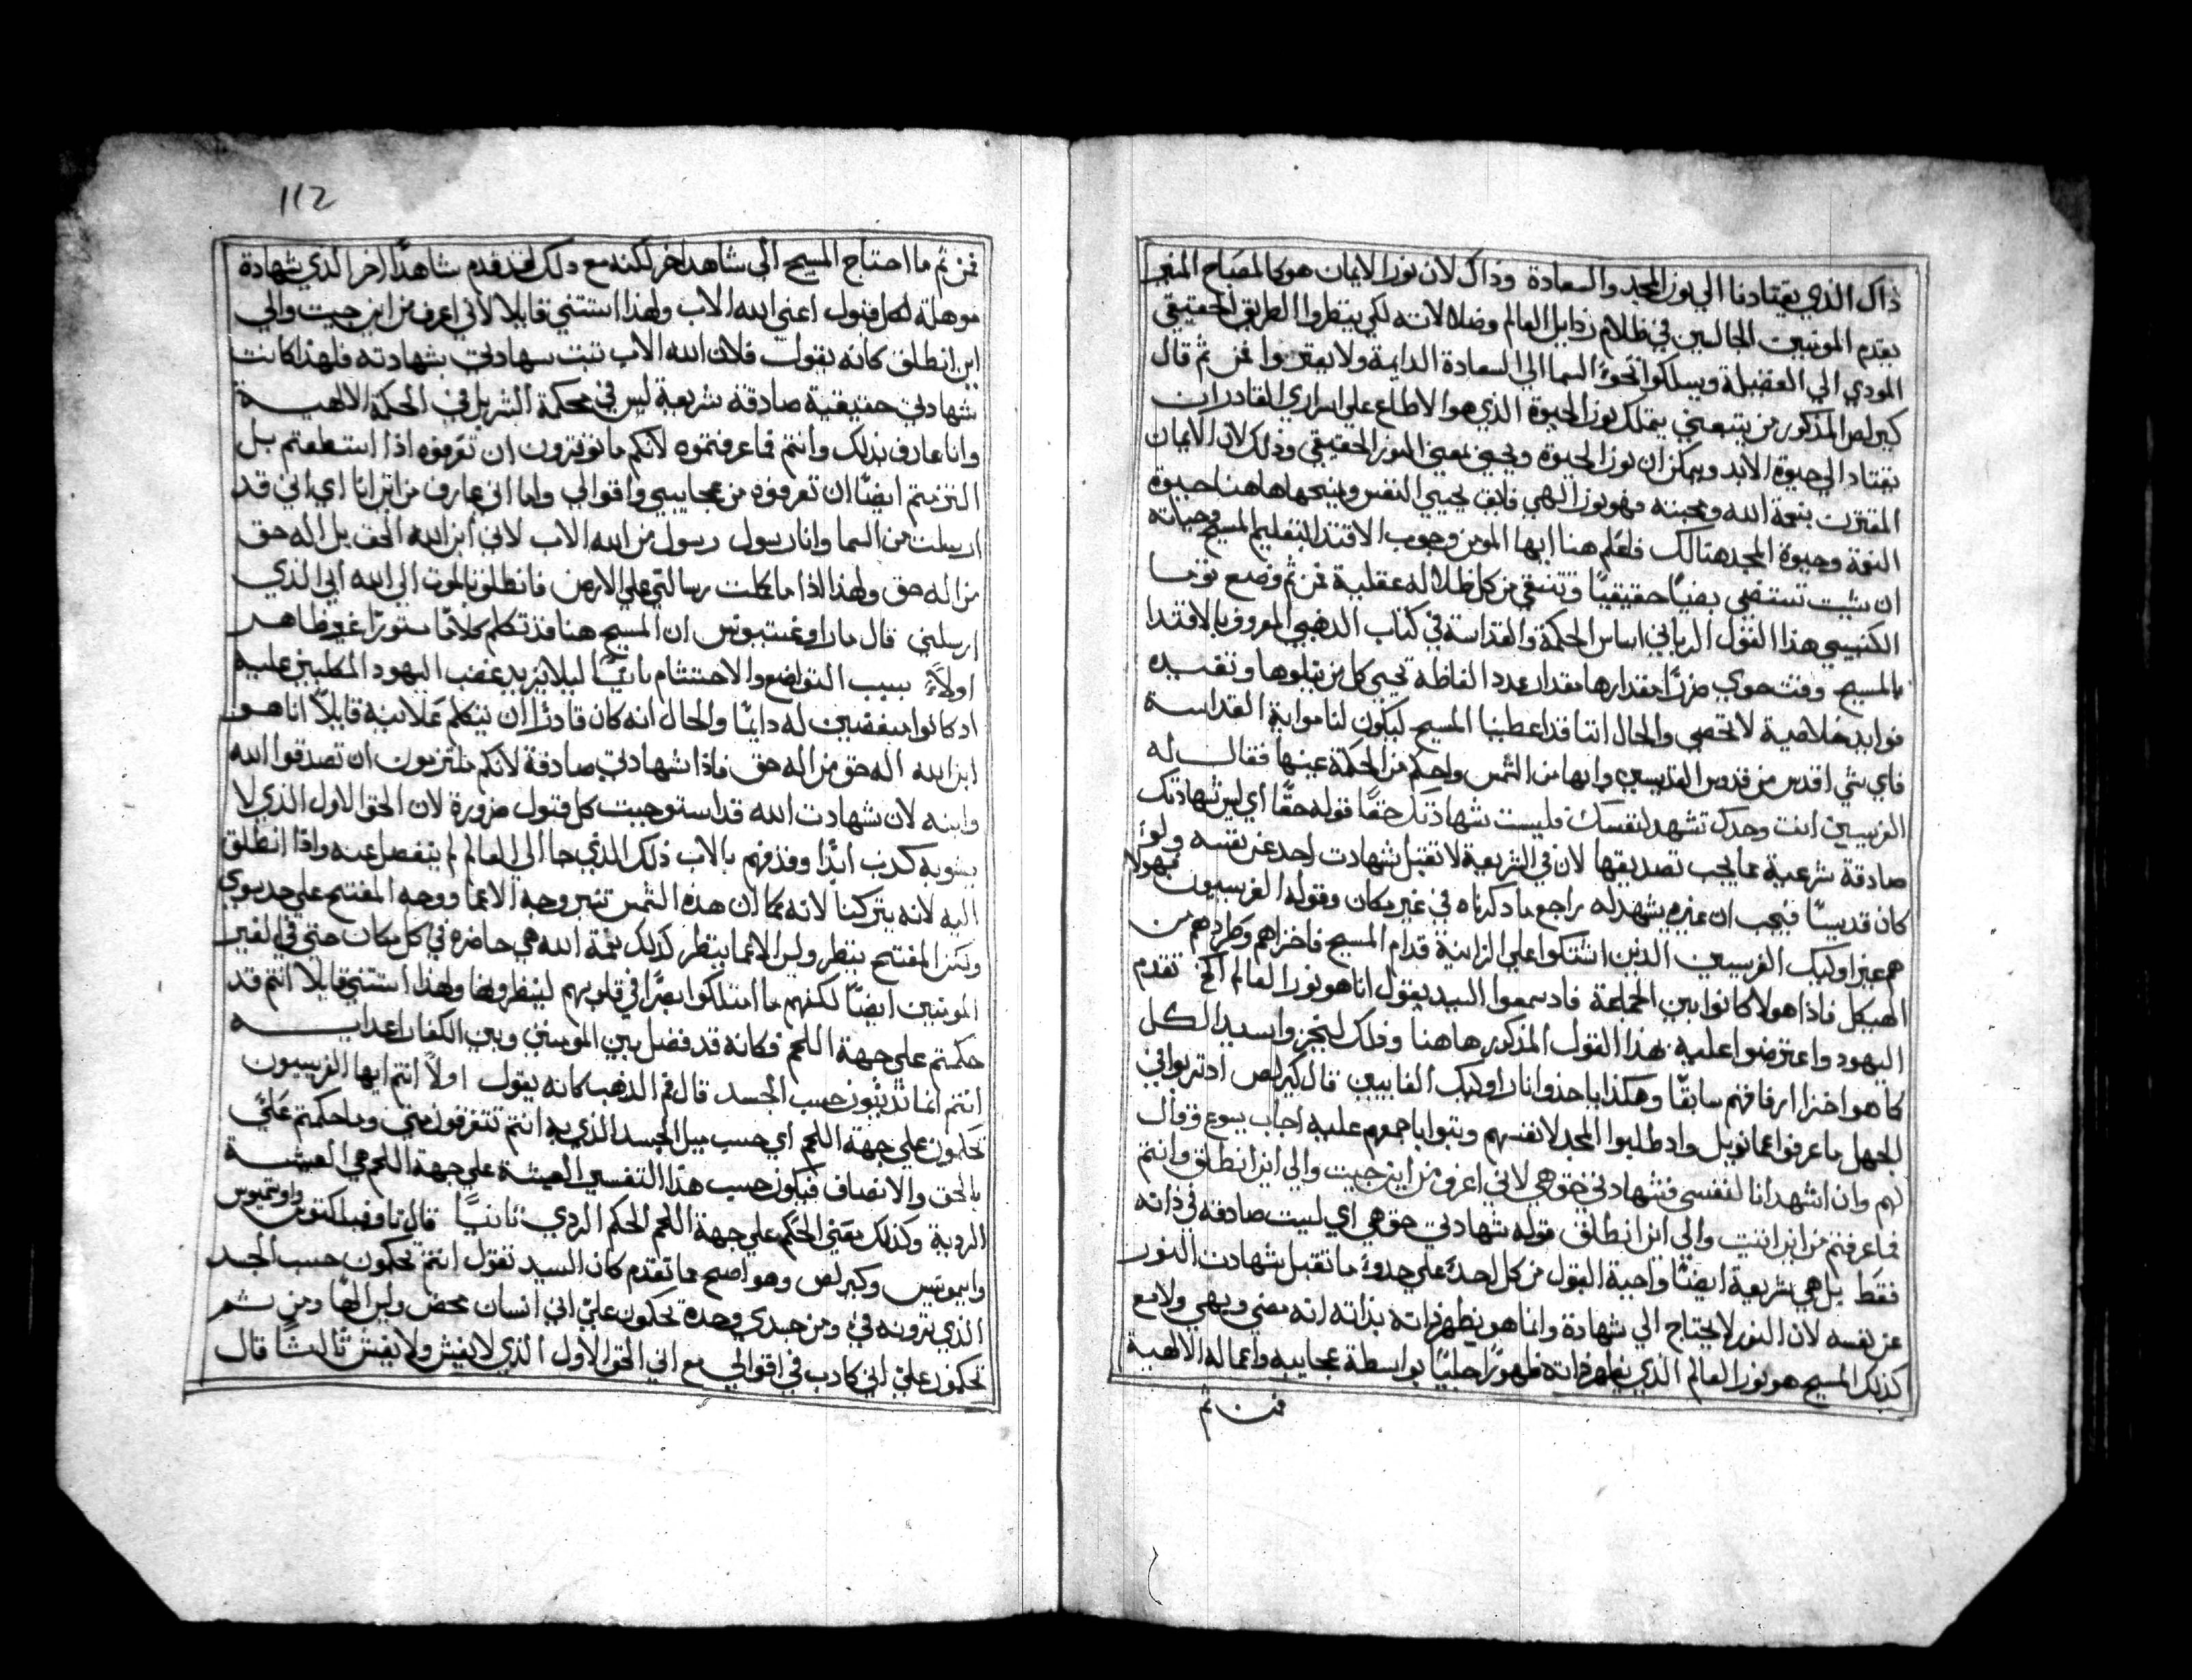 ذاك الذي يقتادنا الي نور المجد والسعادة وذاك لان نور الايمان هو كالمصباح المنير
يقدم المومنين الجالسين في ظلام رذايل العالم وضلالاته لكي ينظروا الطريق الحقيقي
المودي الي الفضيلة ويسلكوا نحو السما الي السعادة الدايمة ولا يعثروا فمن ثم قال
كيرلص المذكور من يتبعني يمتلك نور الحيوة الذي هو الاطلاع علي اسراري القادر ان
يقتاد الي حيوة الابد ويمكن ان نور الحيوة ويحيي بمعني النور الحقيقي وذلك لان الايمان
المقترن بنعمة الله ومحبته فهو نور الهي فايق يحيي النفس ويمنحها هاهنا حيوة
النعمة وحيوة المجد هنالك فلعلم هنا ايها المومن وجوب الاقتدا لتعليم المسيح وحياته
ان شيت تستضي بضيا حقيقيا وتنتقي من كل ظلاله عقلية فمن ثم وضع توما
الكنبيسي هذا القول الرباني اساس الحكمة والقداسة في كتاب الذهبي المعروف بالاقتدا
بالمسيح وقد حوي رموزا مقدارها مقدار عدد الفاظه تحيي كل من يتلوها وتفيده
فوايد خلاصية لا تحصي والحال اننا قد اعطينا المسيح ليكون لنا مراية القداسة
فاي شي اقدس من قدوس القديسين وابها من الشمس واحكم من الحكمة عينها فقال له
الفريسين انت وحدك تشهد لنفسك فليست شهادتك حقا قوله حقا اي ليس شهادتك
صادقة شرعية مما يجب تصديقها لان في الشريعة لا تقبل شهادت احد عن نفسه ولو
كان قديسا فيجب ان غيره يشهد له راجع ما ذكرناه في غير مكان وقوله الفريسيون فهولا
هم غير اوليك الفريسين الذين اشتكوا علي الزانية قدام المسيح فاخزاهم وطردهم من
الهيكل فاذا هولا كانوا بين الجماعة فاد سمعوا السيد يقول انا هو نور العالم الخ تقدم
اليهود واعترضوا عليه بهذا القول المذكور هاهنا وذلك ليخزوا سيد الكل
كما هو اخزا ارفاقهم سابقا وهكذا ياخذوا ثار اوليك الغايبين قال كيرلص اد تربوا في
الجهل ما عرفوا عمانويل واد طلبوا المجد لانفسهم وثبوا باجمعهم عليه اجاب يسوع وقال
لهم وان اشهد انا لنفسي فشهادتي حق هي لاني اعرف من اين جيت والي اين انطلق وانتم
فما عرفتم من اين اتيت والي اين انطلق قوله شهادتي حق هي اي ليست صادقه في ذاته
فقط بل هي شريعة ايضا واجبة القبول من كل احد علي حدوة ما تقبل شهادت النور
عن نفسه لان النور لا يحتاج الي شهادة وانما هو يظهر ذاته بذاته انه مضي وبهي ولامع
كذلك المسيح هو نور العالم الذي يظهر ذاته ظهورا جليا بواسطة عجايبه واعماله الالهية
فمن ثم
112
فمن ثم ما احتاج المسيح الي شاهد اخر لكنه مع ذلك لقد قدم شاهدا اخر الذي شهادة
موهلة لكل قبول اعني الله الاب ولهذا استتني قايلا لاني اعرف من اين جيت والي
اين انطلق كانه يقول فلان الله الاب تبت شهادتي بشهادته فلهذا كانت
شهادتي حقيقية صادقة شريعة ليس في محكمة الشر بل في الحكمة الالهية
وانا عارف بذلك وانتم فما عرفتموه لانكم ما توثرون ان تعرفوه اذا استطعتم بل
التزمتم ايضا ان تعرفوه من عجايبي واقوالي واما اني عارف من اين انا اي اني قد
ارسلت من السما وانا رسول رسول من الله الاب لاني ابن الله الحق بل اله حق
من اله حق ولهذا اذا ما كملت رسالتي علي الارض فانطلق بالموت الي الله ابي الذي
ارسلني قال مار اوغستينوس ان المسيح هنا قد تكلم كلاما مستورا غير ظاهر
اولا بسبب التواضع والاحتشام ثانيا ليلا يزيد غضب اليهود المكلبين عليه
اد كانوا مبغضين له دايما والحال انه كان قادرا ان يتكلم علانية قايلا انا هو
ابن الله اله حق من اله حق فاذا شهادتي صادقة لانكم ملتزمون ان تصدقوا الله
وابنه لان شهادت الله قد استوجبت كل قبول مزورة لان الحق الاول الذي لا
يشوبه كدب ابدا وقد فهم بالاب ذلك الذي جا الي العالم لم ينفصل عنه واذا انطلق
اليه لانه يتركنا لانه كما ان هذه الشمس تنير وجه الاعما ووجه المفتح علي حد سوي
ولكن المفتح ينظر وليس الاعما ينظر كذلك نعمة الله هي حاضره في كل مكان حتي في الغير
المومنين ايضا لكنهم ما امتلكوا بصرا في قلوبهم لينظروها ولهذا استتني قايلا انتم قد
حكمتم علي جهة اللحم فكانه قد فصل بين المومنين وبين الكفار اعدايه
انتم انما تدينون حسب الجسد قال فم الذهب كانه يقول اولا انتم ايها الفريسيون
تحكمون علي جهة اللحم اي حسب ميل الجسد الذي به انتم تتفرقون مني وما حكمتم علي
بالحق والانصاف فيكون حسب هذا التفسير العيشة علي جهة اللحم هي العيشة
الردية وكذلك يعني الحكم علي جهة اللحم الحكم الردي ثانيا قال تاوفيلكتوس واوتيموس
وايمونيس وكيرلص وهو اصح مما تقدم كان السيد تقول انتم تحكمون حسب الجسد
الذي ترونه في ومن جسدي وحده تحكمون علي اني انسان محض وليس الها ومن ثم
تحكمون علي اني كادب في اقوالي مع اني الحق الاول الذي لا يغش ولا يغش ثالثا قال